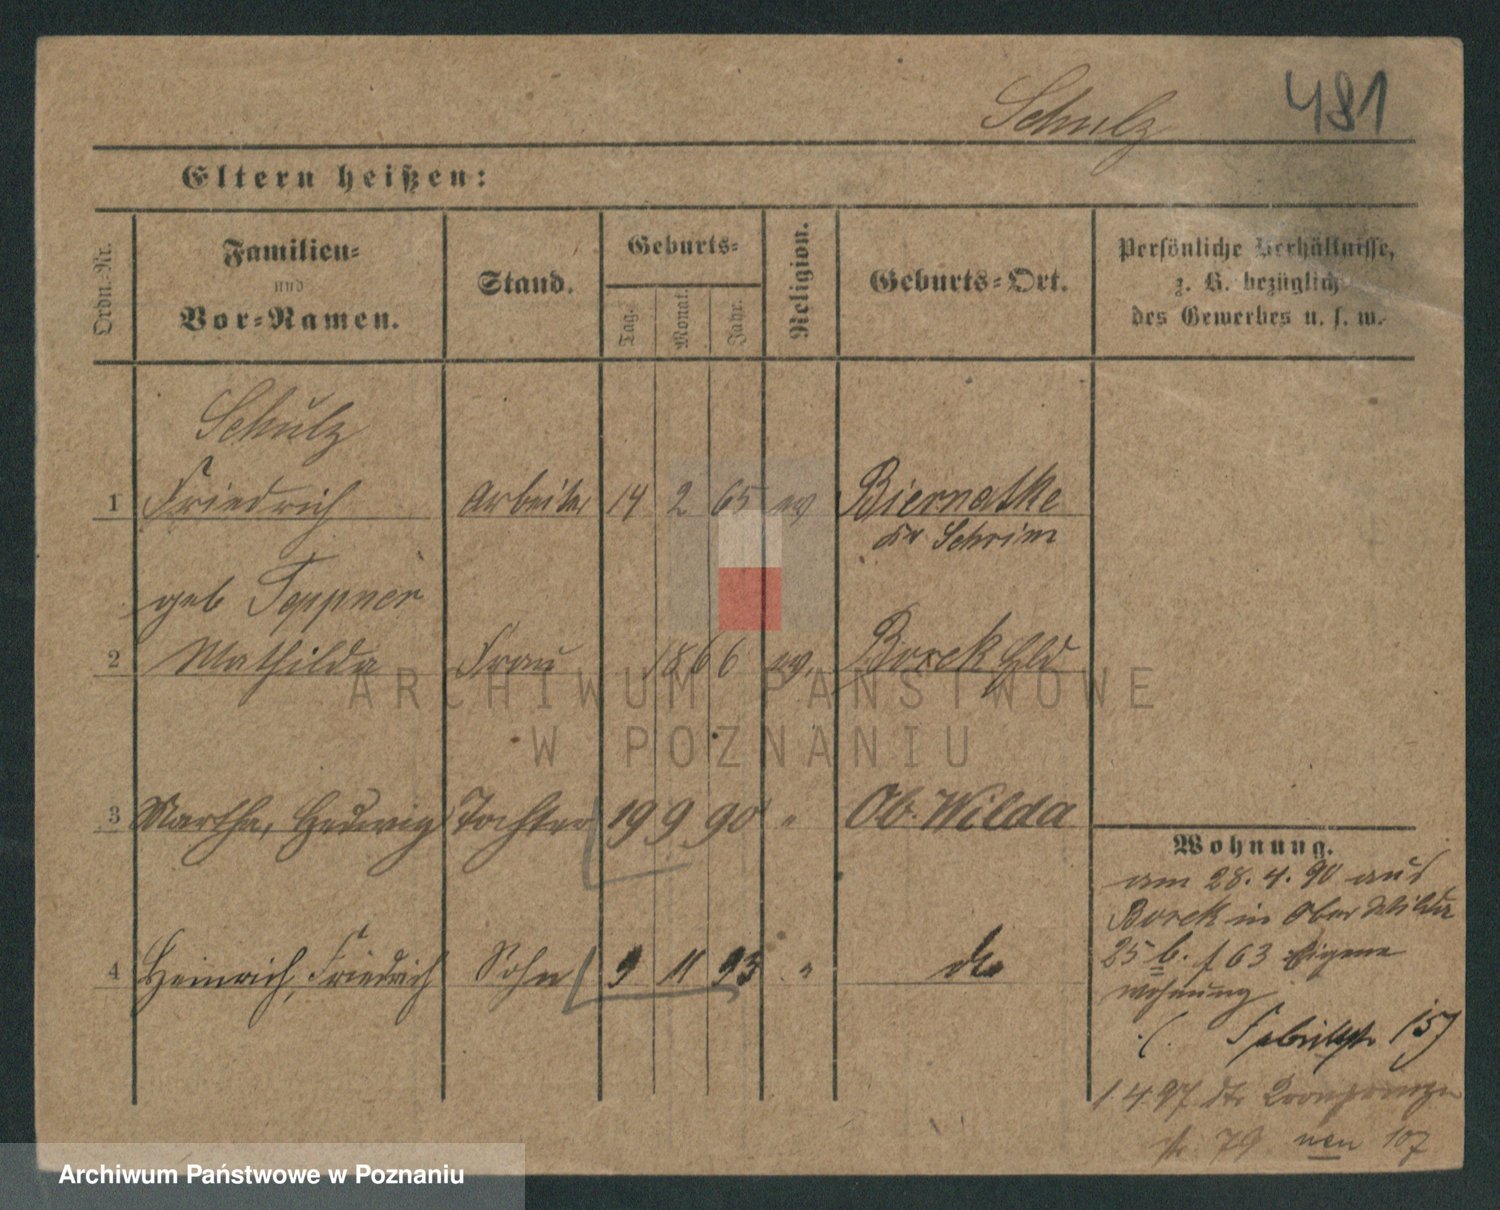 481
Schulz
Eltern heißen:
Ordn.-Nr.
Familien-
und
Vor-Namen.
Stand.
Geburts-
Tag.
Monat.
Jahr.
Religion.
Geburts-Ort.
Persönliche Verhältnisse,
z. B. bezüglich
des Gewerbes u. s. w.
Schulz
1 Friedrich Arbeiter 14 2 65 ev Biernatke
Kr Schrim
geb Teppner
2 Mathilda Frau 1866 ev. Borek
3 Martha, Hedwig Tochter 19 9 90 " Ob. Wilda
4 Heinrich, Friedrich Sohn 9 11 93 " do
Wohnung.
am 28. 4. 90 aus
Borek in Ober Wilda
25 b. f 63 Eigene
Wohnung
Fabrikstr 15
1 4 97 Kronprinzen
str 79 neu 107
ARCHIWUM PAŃSTWOWE
W POZNANIU
Archiwum Państwowe w Poznaniu